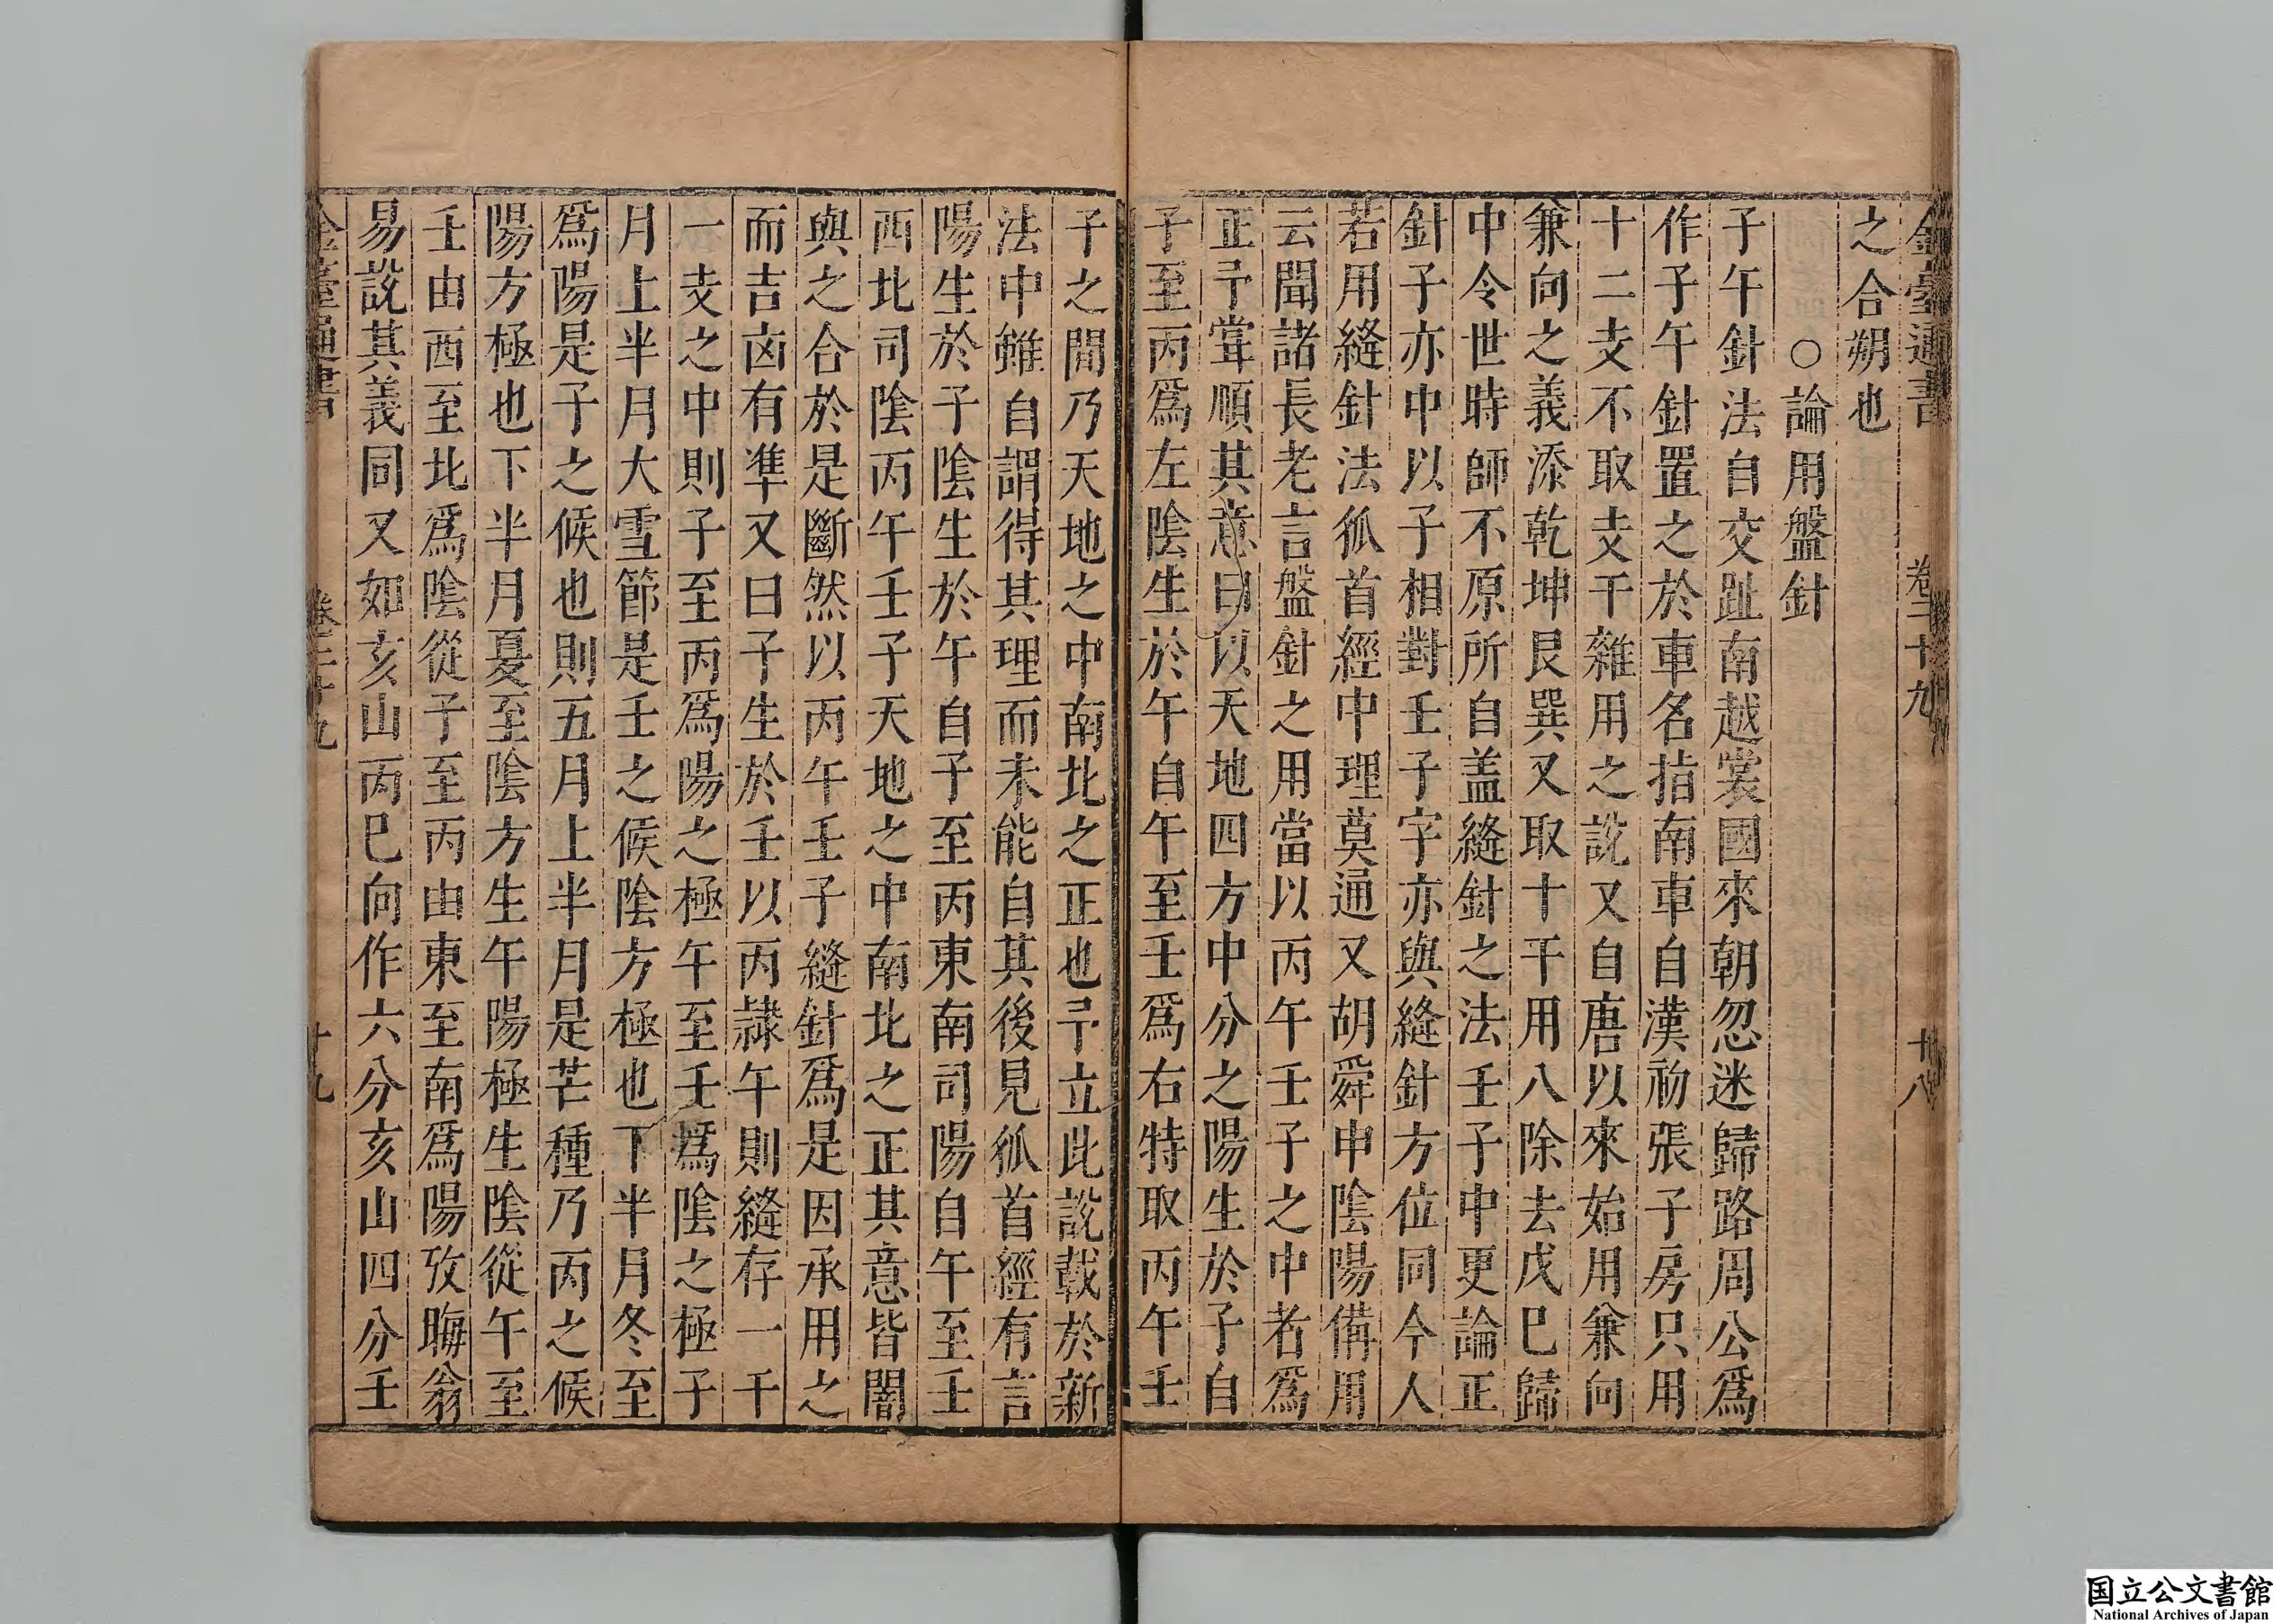 金臺通書 卷二十九 十八
之合朔也
○論用盤針
子午針法自交趾南越裳國來朝忽迷歸路周公爲
作子午針置之於車名指南車自漢初張子房只用
十二支不取支干雜用之說又自唐以來始用兼向
兼向之義添乾坤艮巽又取十干用八除去戊巳歸
中令世時師不原所自盖縫針之法壬子中更論正
針子亦中以子相對壬子字亦與縫針方位同今人
若用縫針法狐首經中理莫通又胡舜申陰陽備用
云聞諸長老言盤針之用當以丙午壬子之中者爲
正予甞順其意曰以天地四方中分之陽生於子自
子至丙爲左陰生於午自午至壬爲右特取丙午壬
子之間乃天地之中南北之正也予立此說載於新
法中雖自謂得其理而未能自其後見狐首經有言
陽生於子陰生於午自子至丙東南司陽自午至壬
西北司陰丙午壬子天地之中南北之正其意皆闇
與之合於是斷然以丙午壬子縫針爲是因承用之
而吉凶有準又曰子生於壬以丙隷午則縫存一干
一支之中則子至丙爲陽之極午至壬爲陰之極子
月上半月大雪節是壬之候陰方極也下半月冬至
爲陽是子之候也則五月上半月是芒種乃丙之候
陽方極也下半月夏至陰方生午陽極生陰從午至
壬由西至北爲陰從子至丙由東至南爲陽攷晦翁
易說其義同又如亥山丙巳向作六分亥山四分壬
金臺通書 卷二十九 十九
国立公文書館
National Archives of Japan